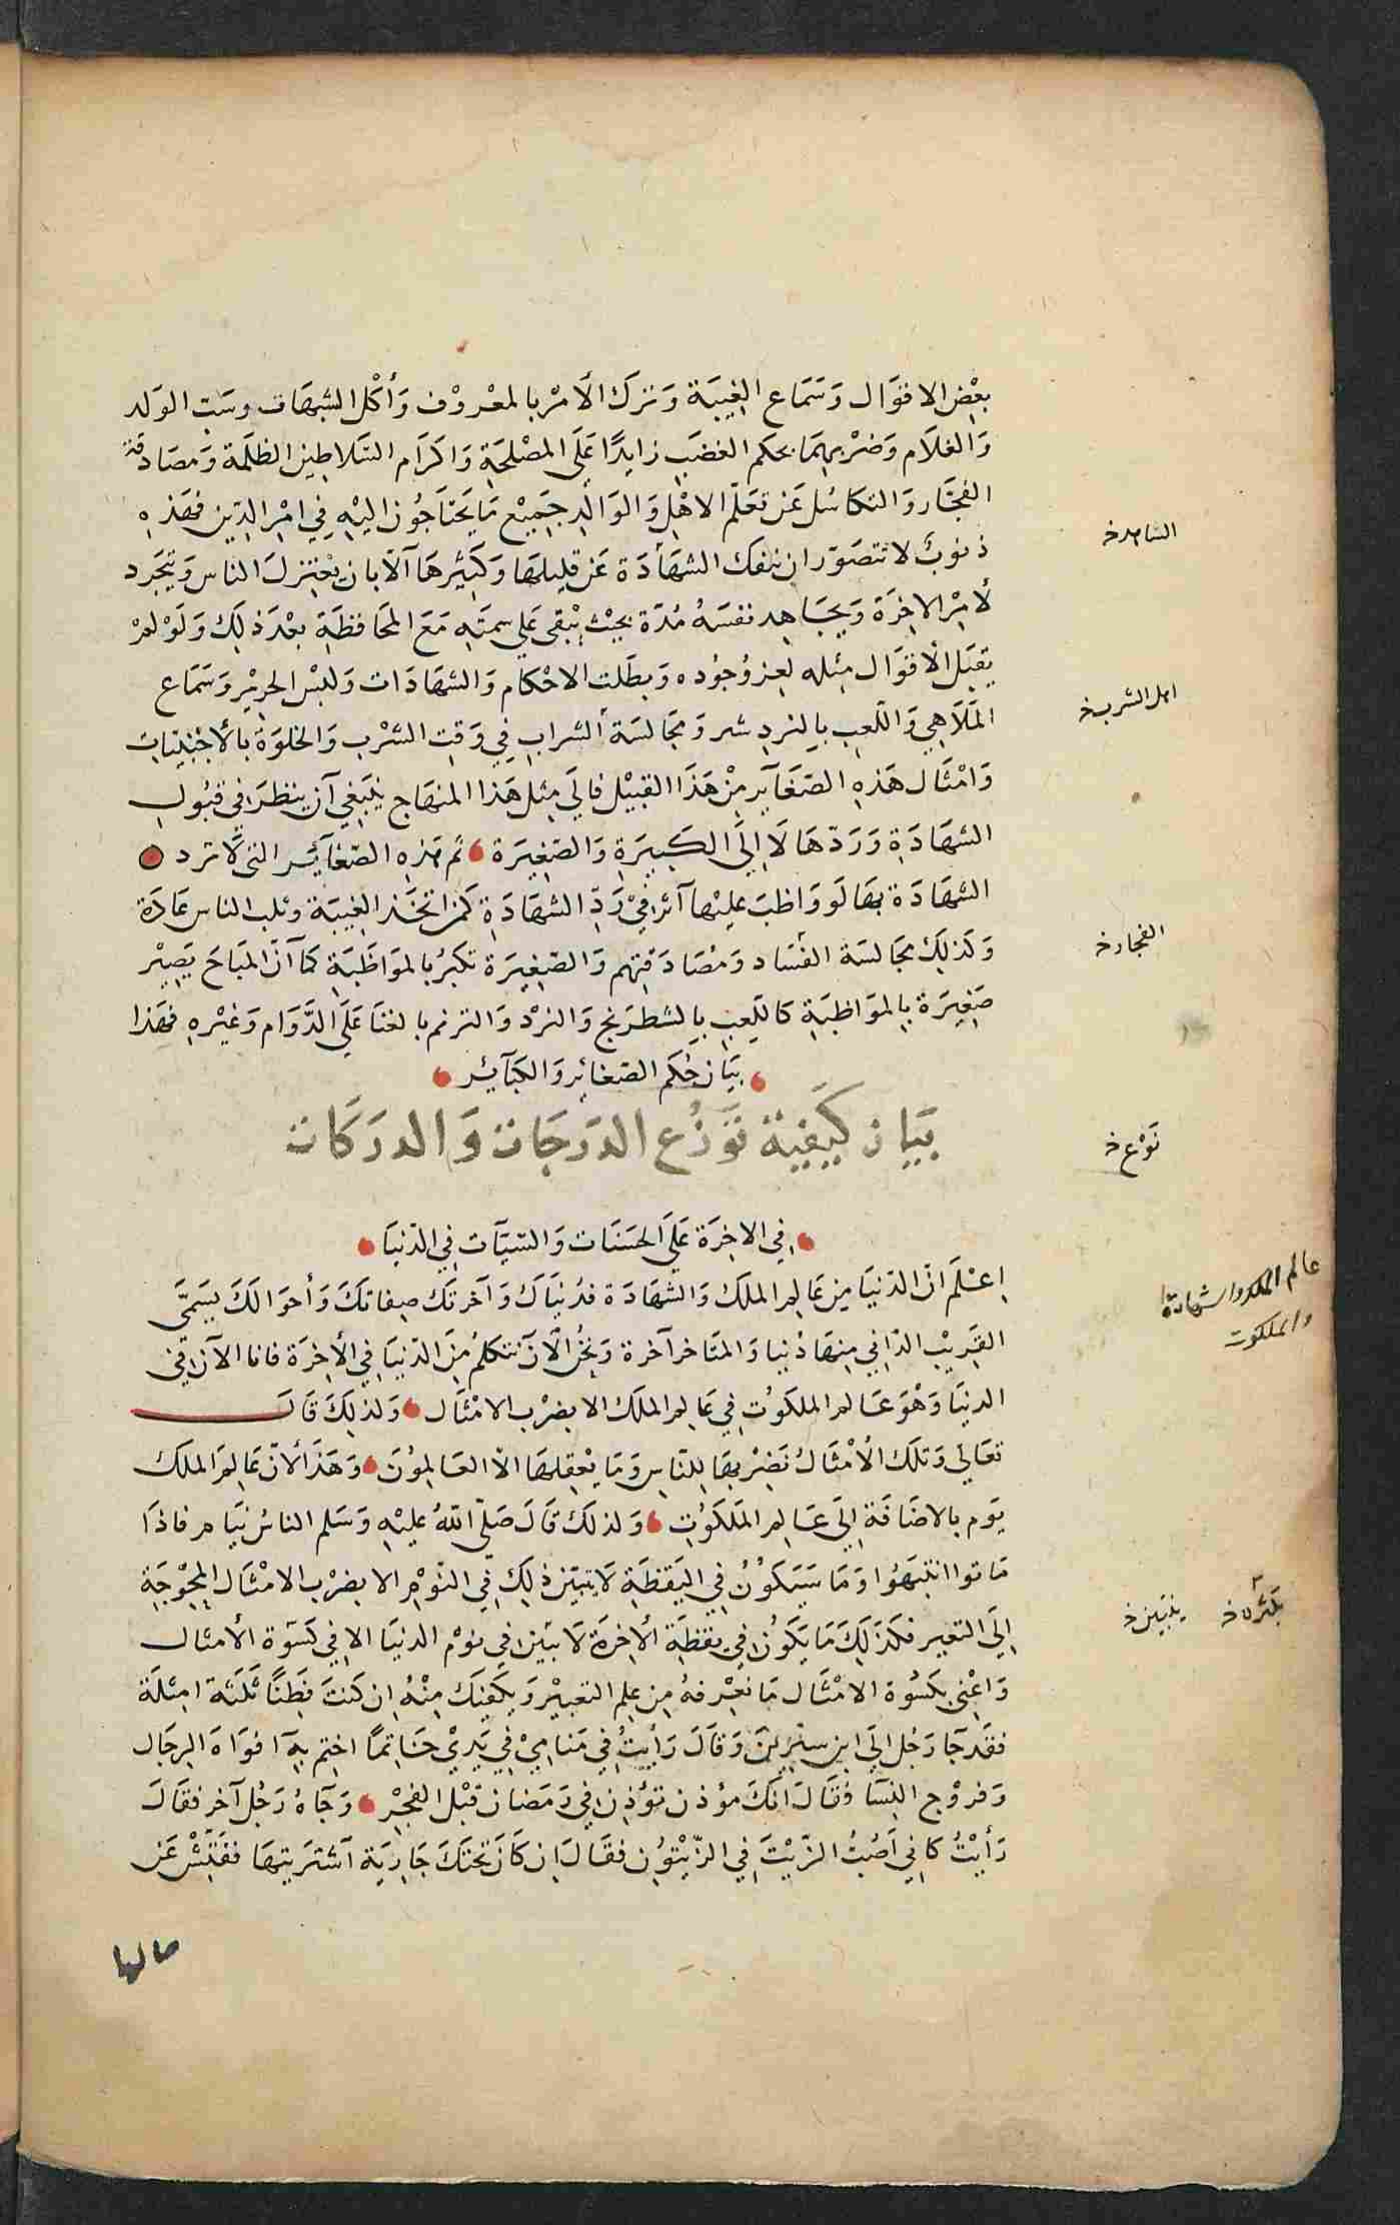 بعْضِ الاقوَال وَسَمَاع الغِيبَة وَتركَ الأمْر بالمعْروْف وَأكْل الشبهَات وسَبّ الوَلد
وَالغلَام وَضرْبهمَا بحكم الغضَب زايدًا عَلَى المصْلحَةِ وَاكرَام السَّلاطين الظلَمة وَمصَادقة
الفجَّار وَالتكاسُل عَن تعَلّم الاهْل وَالوَالدِ جمَيْع مَا يَحتَاجُون اليْهِ فِي امْرِ الدِّين فهَذهِ
ذنوبٌ لا تتصَوّر ان ينفك الشهَادَة عَن قليلهَا وَكَثيرهَا آلّا بان يعْتزلَ الناس وَيتجَرد
لأمْر الاخِرَة وَيجَاهِد نفسَهُ مُدّة بحيْث يبْقى عَلي سمتَهِ مَعَ المحَافظَةِ بعْدَ ذلِكَ وَلَوْ لمْ
يَقبَل الاقوَال مِثله لعز وُجُوده وَبطَلت الاحْكام وَالشهَادَات وَلبْس الحريْر وَسَمَاع
المَلَاهِي وَاللّعب بالنرد شر وَمجَالسَة الشراب فِي وَقتِ الشرْب وَالخلوَة بالأجْنبيّات
وَامْثَال هَذهِ الصّغَآير مِنْ هَذَا القبيْل فالَي مِثل هَذا المنهَاج يَنبَغِي آن ينظرَ في قبُول
الشهَادَةِ وَرَدّهَا لَا إلَى الكَبيرَةِ وَالصّغِيرَة ، ثم هَذهِ الصّغآئر التى لَا ترد
الشهَادَة بهَا لَو وَاظبَ عليْهَا آثر فيْ رَدّ الشهَادَةِ كمَن اتخَذ الغِيبَة وثلب الناس عَادَة
وَكَذلِكَ مجَالسَة الفسَاد وَمُصَادَقتهم وَالصّغِيرَة تكبرُ بالموَاظَبَةِ كمَا آنَّ المبَاحَ يَصِيْر
صَغِيرَة بالموَاظبَةِ كاللّعب بالشطرَنج وَالنرْد وَالترنم بالغنَا عَلَى الدَّوَام وَغيْرهِ فهَذا
، بَيَان حُكم الصّغائِر وَالكبَآئر ،
بَيَان كَيفِيَة تَوَزُع الدَرَجَات وَالدرَكَات
، فِي الاخِرَة عَلَى الحسَنَات وَالسّيَّآت فِي الدّنيَا ،
اِعْلَم انّ الدّنيَا مِن عَالم الملك وَالشهَادَة فدُنيَاكَ وَآخرتكَ صِفاتكَ وَأحوَالكَ يسَمَّى
القَرِيْب الدّاني مِنهَا دُنيا وَالمتَاخر آخرة وَنحْنُ الآنَ نتكلمُ مِنَ الدّنيَا فِي الأخِرَة فانا الآن فِي
الدنيَا وَهْوَ عَالم الملكوُتِ فِي عَالم الملك الا بضرْب الامْثَال ، وَلذلِكَ قَال
تعَالَي وَتلكَ الأمْثَالُ نَضِرْبهَا لِلنّاسِ وَمَا يعْقِلهَا الاّ العَالِموُنَ ، وَهَذَا لأنّ عَالَم الملك
يَوم بالاضَافَةِ اِلَى عَالِم المَلَكوُتِ ، وَلذلكَ قَالَ صَلّى اللّهُ عليْهِ وَسَلم الناسُ نيَام فاذَا
مَاتوا انتبَهُوا وَمَا سَيَكوُنُ فِي اليَقظَةِ لَا يتبيّن ذلِكَ فِي النّوْم الا بضرْب الامْثَال المحْوْجَةِ
اِلَى التعبير فكَذلِكَ مَا يَكوُن فِي يقظَةِ الأخِرَة لَا يتَبين في نوْم الدنيَا الا فِي كَسْوَة الأمثال
وَاعْنِى بكسْوَة الامْثَال مَا نعْرفهُ مِن علِم التعبيْر وَيَكفِيْك مِنْهُ ان كنتَ فَطِنًا ثَلَثَة امثِلَة
فقَد جآ رَجُل اِلَي ابن سيْريْن وَقالَ رَأيْتُ فِي مَنامِيْ فِي يَدِيْ خَاتِمًا اختِم بِهِ افوَاهَ الرجَال
وَفروْج النِسَآ فقَالَ انكَ مؤذن تؤذِن فِي رَمَضان قبْل الفجْر ، وَجَآهُ رَجُل آخر فقالَ
رَأيْتُ كاني آصُبُّ الزّيْتَ فِي الزّيْتوُن فقالَ اِن كَانَ تحتكَ جَاريَة آشترَيتهَا ففَتِّشْ عَن
حالها
اهل الشرب خ
الفجار خ
تَوْع خ
عالم الملك والشهادة
والملكوت
يتبين خ